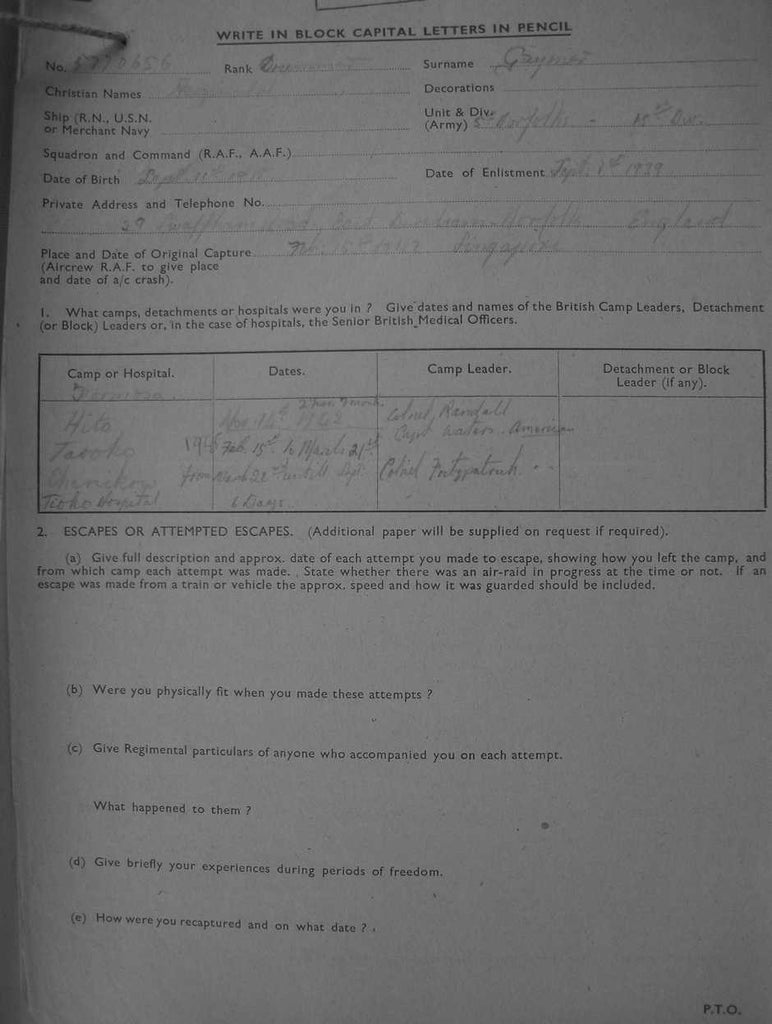 WRITE IN BLOCK CAPITAL LETTERS IN PENCIL
No. Rank Surname
Christian Names Decorations
Ship (R.N., U.S.N. or Merchant Navy Unit & Div. (Army) 5th Norfolks - 18th Div.
Squadron and Command (R.A.F., A.A.F.)
Date of Birth Date of Enlistment Sept. 1939
Private Address and Telephone No.
Norfolk England
Place and Date of Original Capture Feb. 15th 1942 Singapore
(Aircrew R.A.F. to give place
and date of a/c crash).
1. What camps, detachments or hospitals were you in ? Give dates and names of the British Camp Leaders, Detachment
(or Block) Leaders or, in the case of hospitals, the Senior British Medical Officers.
Camp or Hospital. Dates. Camp Leader. Detachment or Block Leader (if any).
Formosa
Heito Nov 14th 1942 Colonel Randall
Taroko 1945 Feb. 15th to March 21st Capt Waters. American
from March 22nd until Sept. Colonel
Hospital 6 Days
2. ESCAPES OR ATTEMPTED ESCAPES. (Additional paper will be supplied on request if required).
(a) Give full description and approx. date of each attempt you made to escape, showing how you left the camp, and
from which camp each attempt was made. State whether there was an air-raid in progress at the time or not. If an
escape was made from a train or vehicle the approx. speed and how it was guarded should be included.
(b) Were you physically fit when you made these attempts ?
(c) Give Regimental particulars of anyone who accompanied you on each attempt.
What happened to them ?
(d) Give briefly your experiences during periods of freedom.
(e) How were you recaptured and on what date ?
P.T.O.